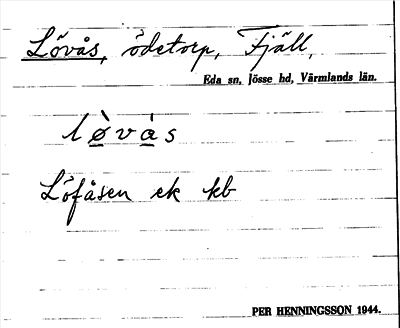 Lövås, ödetorp, Fjäll,
Eda sn, Jösse hd, Värmlands län.
lø̀vàs
Löfåsen ek kb
PER HENNINGSSON 1944.